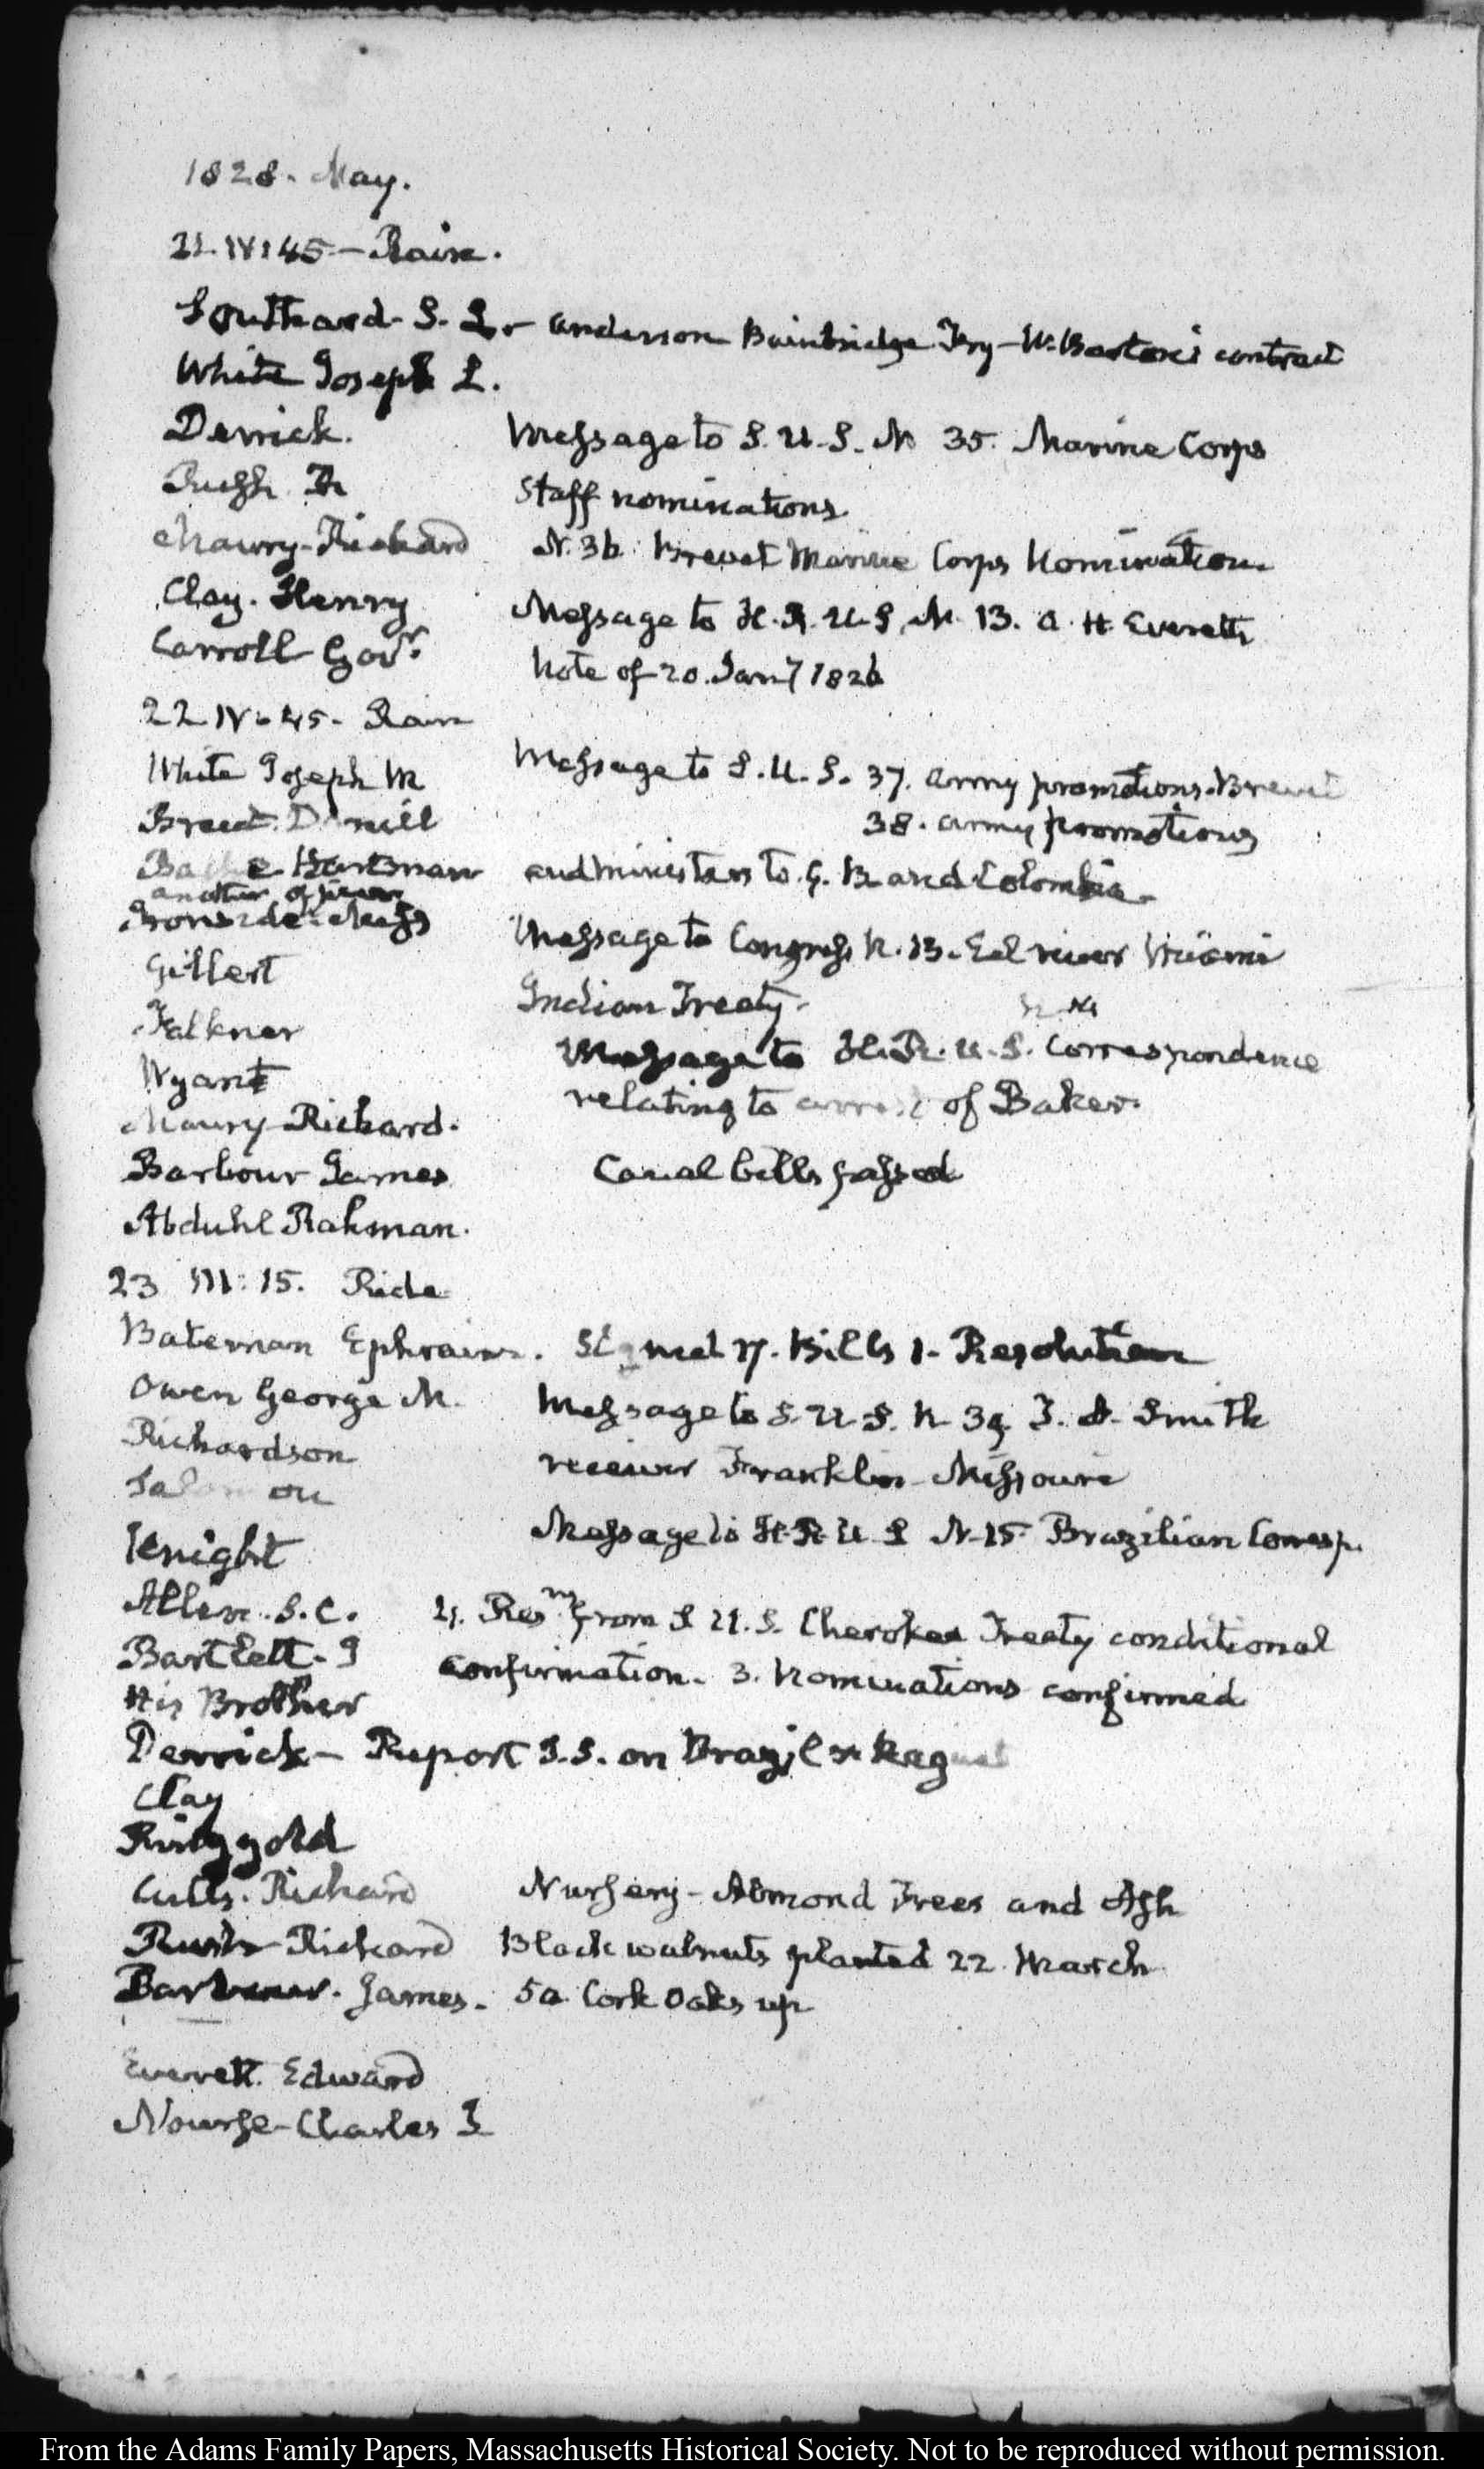 1828. May.
21. IV:45 — Rain.
Southard. S. L. — Anderson Bainbridge Fry — W. Barton's contract
White Joseph L.
Derrick. Message to S. U. S. N 35. Marine Corps
Rush R Staff nominations
Maury-Richard N. 36. Brevet Marine Corps Nomination
Clay. Henry Message to H. R. U S. N. 13. A. H. Everett's
Carroll Govr. Note of 20. Jany 1826
22 IV:45. Rain
White Joseph M Message to S. U. S. 37. Army promotions. Brevet
Breed. Daniell 38. Army promotions
Hartman and ministers to G. B and Colombia.
another officer
Ironside Message to Congress N. 13. Eel river Miami
Gilbert Indian Treaty.
Falkner N. 14
Wyant Message to H. R. U. S. Correspondence
Maury-Richard. relating to arrest of Baker.
Barbour James Canal bills passed
Abduhl Rahman.
23 III:15. Ride
Bateman Ephraim. Signed 17. Bills 1. Resolution
Owen George M. Message to S. U. S. N 39. Smith
Richardson receiver Franklin Missouri
Message to H. R U S N. 15 Brazilian Corresp.
Knight
Allen. S. C. 4. Resns. from S U. S. Cherokee Treaty conditional
Bartlett. I confirmation. 3. Nominations confirmed
His Brother
Derrick — Report S. S. on Brazil & Raguet
Clay
Ringgold
Cutts. Richard Nursery — Almond Trees and Ash
Rush Richard Black walnuts planted 22 March
Barbour. James. 50 Cork Oaks up
Everett. Edward
Nourse-Charles J
From the Adams Family Papers, Massachusetts Historical Society. Not to be reproduced without permission.